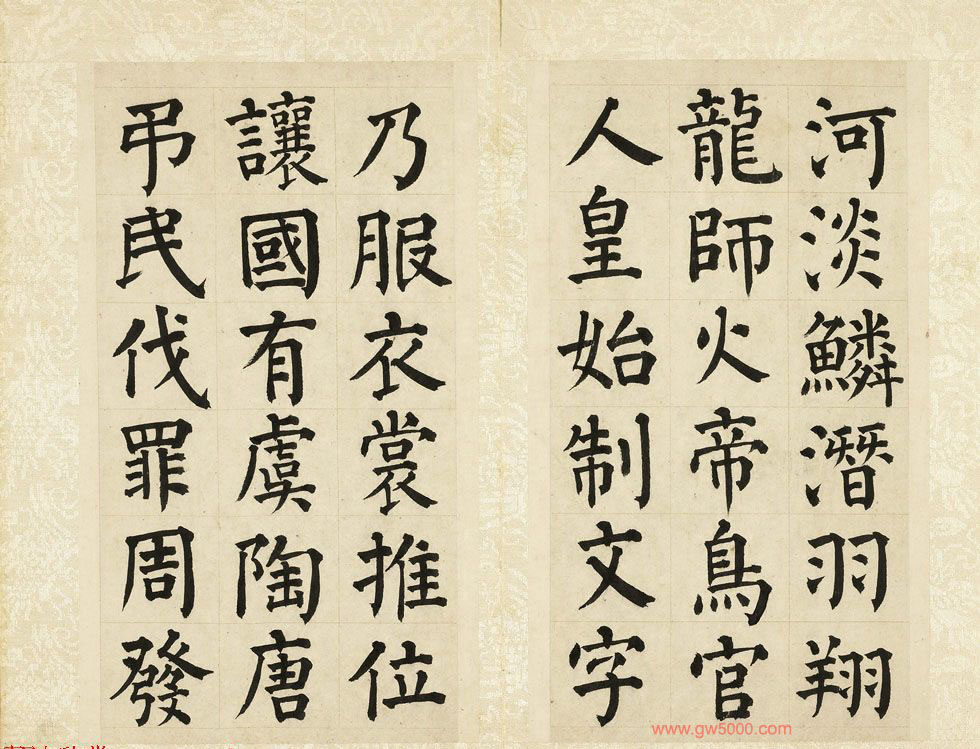 河淡鱗潛羽翔
龍師火帝鳥官
人皇始制文字
乃服衣裳推位
讓國有虞陶唐
弔民伐罪周發
www.gw5000.com